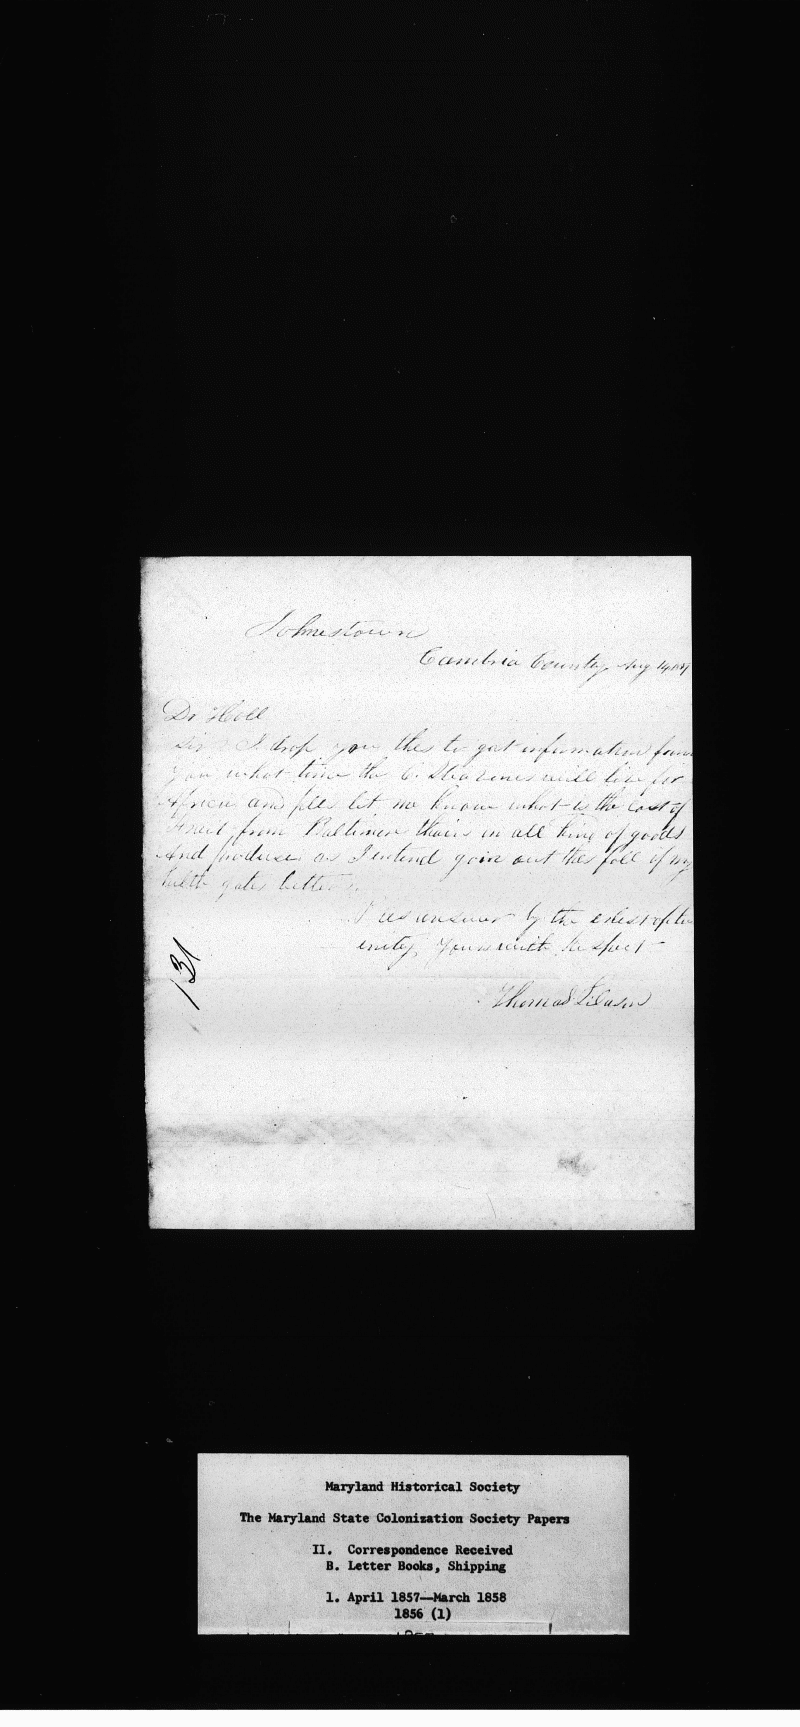 Johnestown
Cambria County Aug 14
Dr Hall
Sir I drop you thes to get information
you what time the C. Stevenes will live for
Africa and ples let me know what is the cost of
from Baltimor thair in all king of goods
And produse as I intend goin out thes fall if my
helth gates better
Ples answer by the erlest
unity Yours with Respect
Thomas
131
Maryland Historical Society
The Maryland State Colonization Society Papers
II. Correspondence Received
B. Letter Books, Shipping
1. April 1857—March 1858
1856 (1)